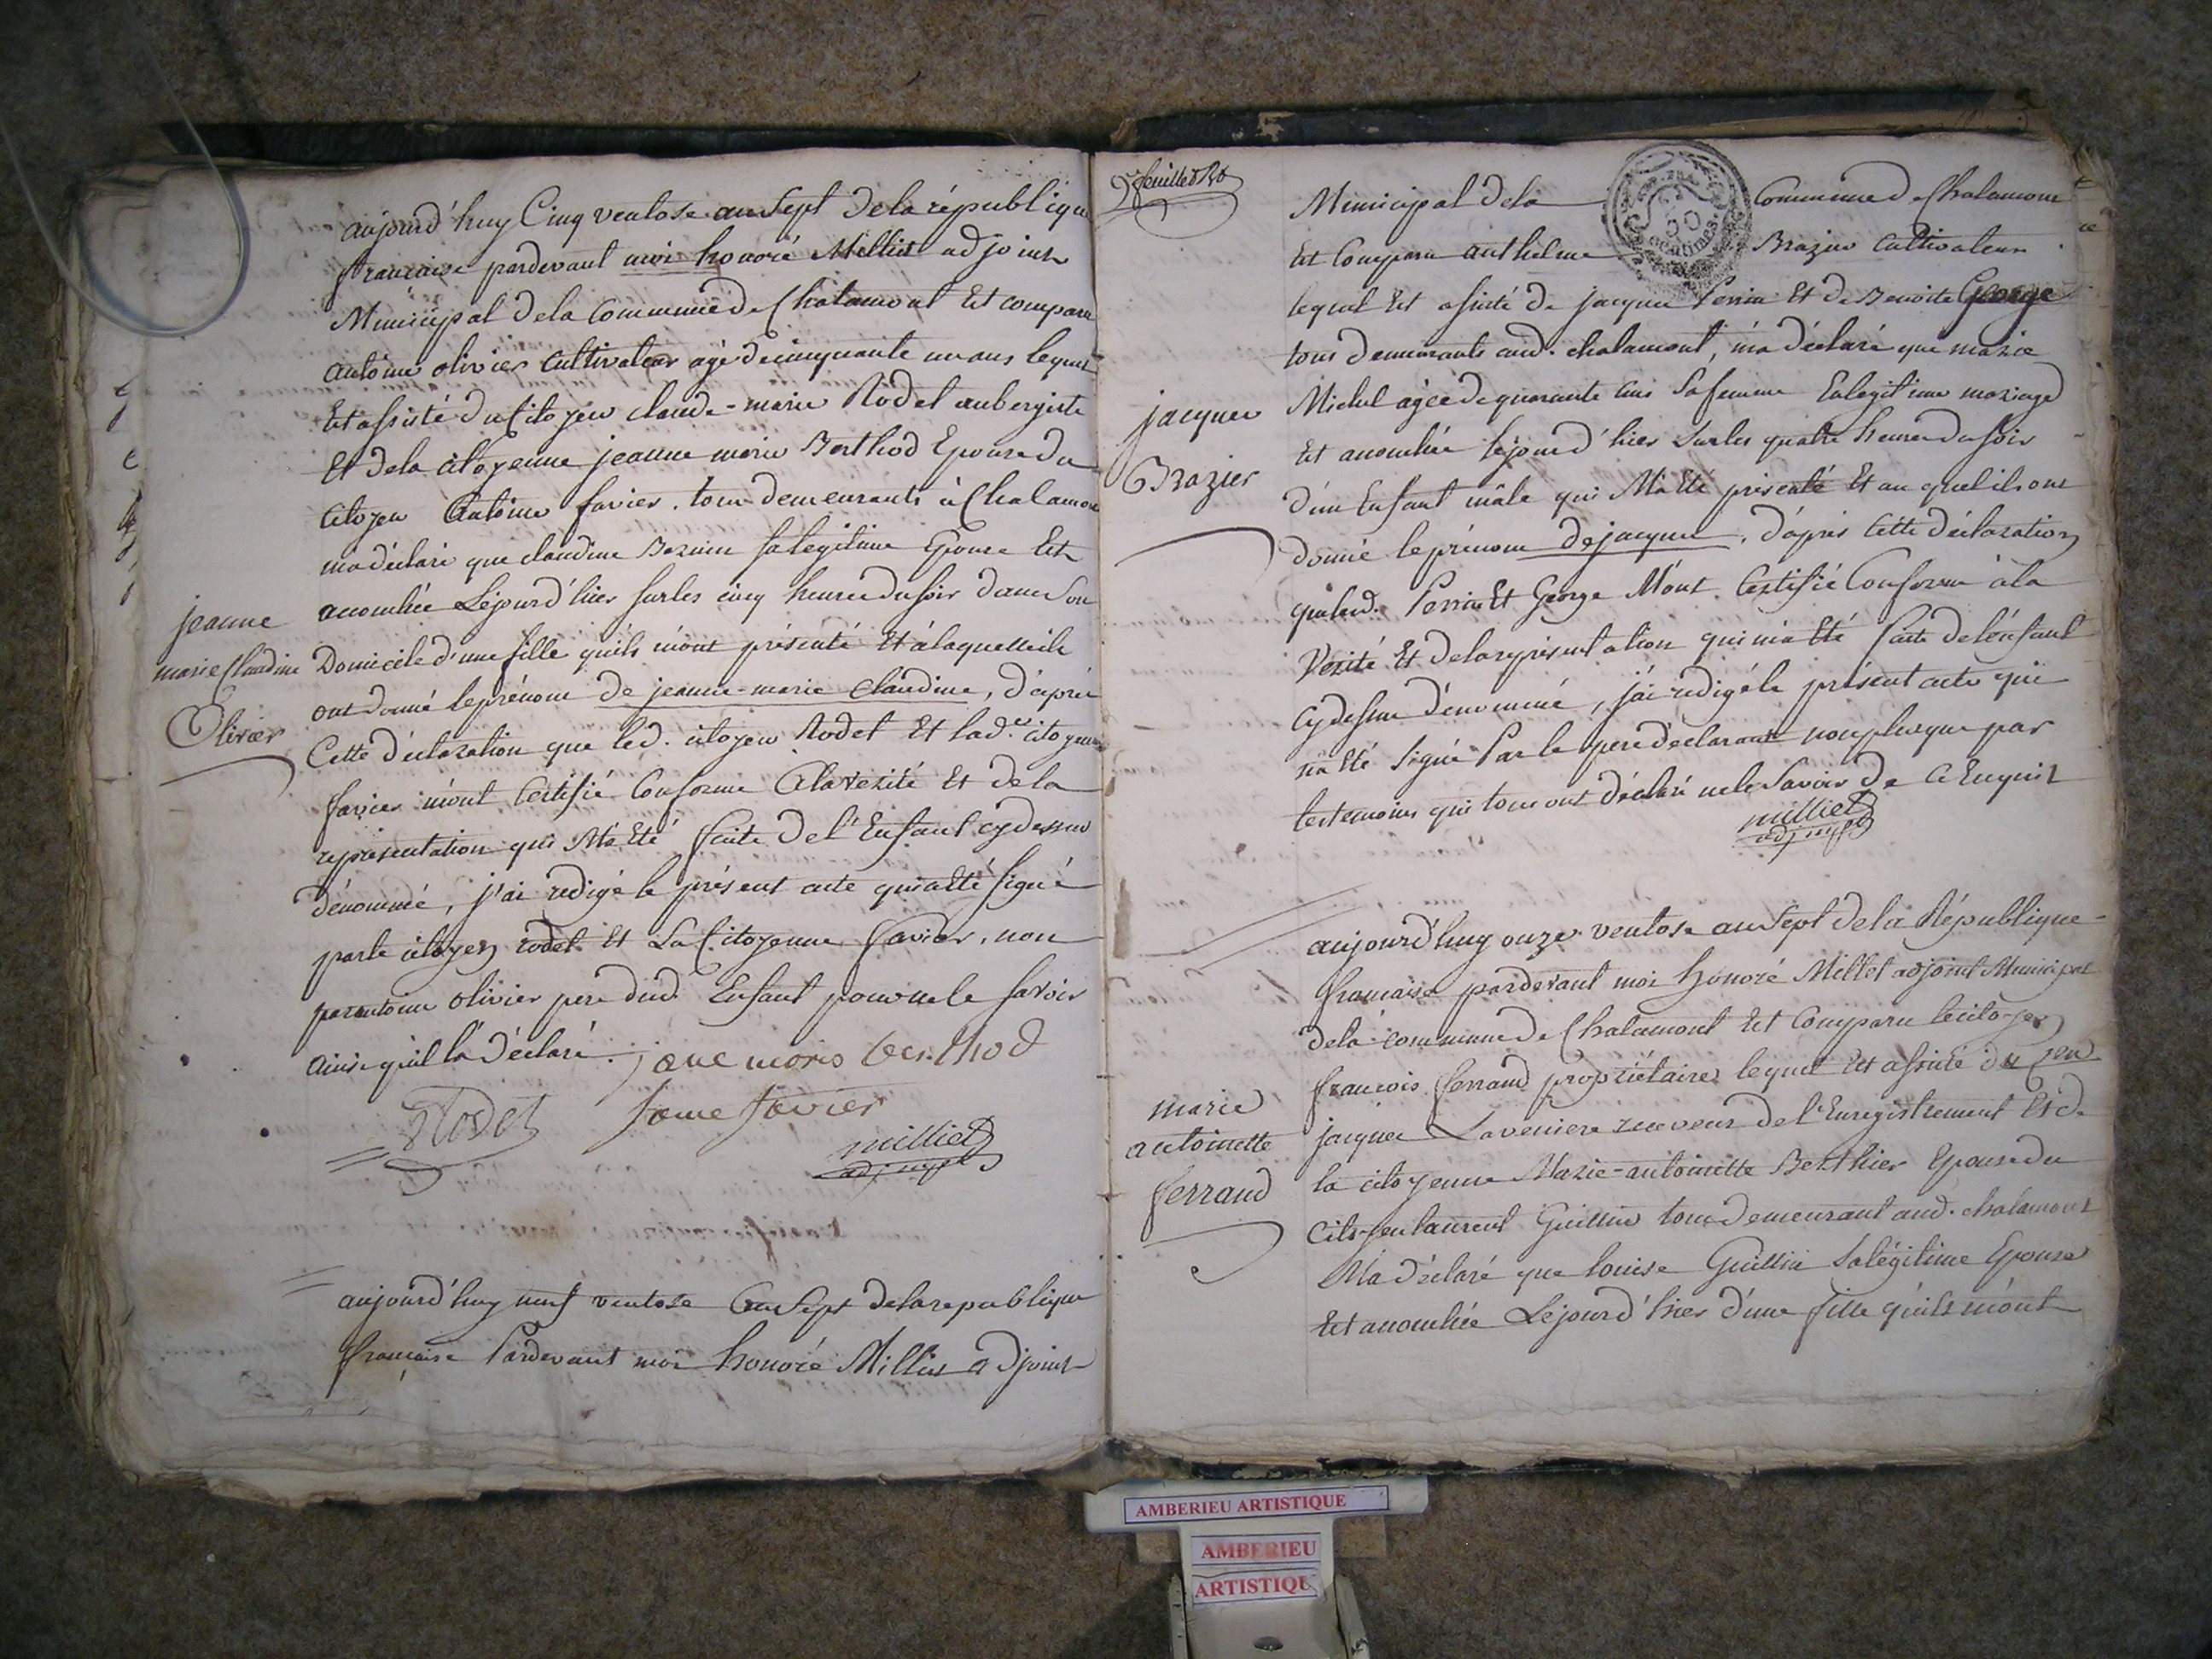 aujourd'huy Cinq ventose an Sept de la république
française pardevant moi honoré Milliet adjoint
Municipal de la Commune de Chalamont Est comparu
antoine olivier Cultivateur agé de cinquante un ans lequel
Est assisté du Citoyen claude-marie Rodet aubergiste
Et de la citoyenne jeanne marie Berthod Epouse du
citoyen Antoine favier. tous demeurants à Chalamont
m'a déclaré que claudine sa legitime Epouse Est
accouchée Le jourd'hier sur les cinq heures du soir dans son
Domicile d'une fille qu'ils m'ont présenté Et à laquelle ils
ont donné le prénom de jeanne-marie claudine, d'après
Cette déclaration que led. citoyen Rodet Et lad.e citoyenne
favier m'ont Certifié Conforme A la vérité Et de la
représentation qui M'a Eté faite de l'Enfant cydessus
dénommé, j'ai redigé le présent acte qui a Eté signé
par le citoyen rodet Et La Citoyenne favier, non
par antoine olivier pere dud. Enfant pour ne le savoir
ainsi qu'il l'a déclaré. jane marie berthod
Rodet fame favier
milliet
adj mpal
jeanne
marie Claudine
Olivier
aujourd'huy neuf ventose an Sept de la republique
française Pardevant moi honoré Milliet adjoint
2e feuillet Ro
Municipal de la Commune de Chalamont
50
centimes.
Est Comparu anthelme Brazier Cultivateur
lequel Est assisté de jacques Perrin Et de Benoite George
tous demeurants aud. chalamont, m'a déclaré que marie
Michel agée de quarante ans sa femme En legitime mariage
Est accouchée le jourd'hier sur les quatre heures du soir
d'un Enfant mâle qui M'a Eté présenté Et au quel ils ont
donné le prénom de jacques. d'après Cette déclaration
que lesd. Perrin Et George M'ont Certifié Conforme à la
Vérité Et de la représentation qui m'a Eté faite de l'enfant
cydessus dénommé, j'ai redigé le présent acte qui
n'a Eté signé Par le pere déclarant non plus que par
les temoins qui tous ont déclaré ne le Savoir de ce Enquis
milliet
adj mpal
jacques
Brazier
aujourd'huy onze ventose an Sept de la République
française pardevant moi honoré Milliet adjoint Municipal
de la commune de Chalamont Est Comparu le citoyen
francois ferrand propriétaire lequel Est assisté du Cen
jacques Laveniere receveur de l'Enregistrement Et de
la citoyenne Marie-antoinette Berthier Epouse du
Citoyen laurent Guillin tous demeurant aud. chalamont
M'a déclaré que louise Guillin Sa légitime Epouse
Est accouchée Le jourd'hier d'une fille qu'ils m'ont
marie
antoinette
ferrand
AMBERIEU ARTISTIQUE
AMBERIEU
ARTISTIQU